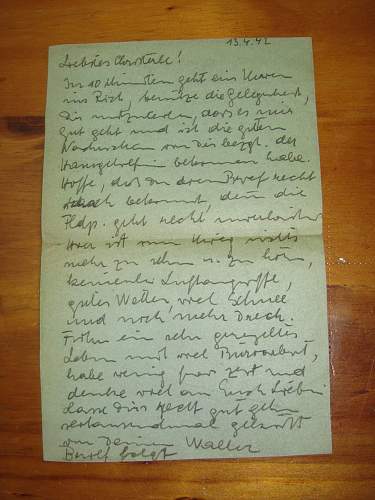 13.4.42
Liebstes Christerle!
In 10 Minuten geht ein Kurier
ins Reich, benütze die Gelegenheit,
Dir mitzuteilen, dass es mir
gut geht und ich die guten
Nachrichten von Dir bezgl. des
bekommen habe.
Hoffe, daß du den Brief recht
rasch bekommst, denn die
Fldp. geht recht
Hier ist vom Krieg nichts
mehr zu sehn u. zu hörn,
keinerlei Luftangriffe,
gutes Wetter, viel Schnee
und noch mehr Dreck.
Führe ein sehr geregeltes
Leben mit viel Büroarbeit,
habe wenig freie Zeit und
denke viel an Euch Lieben
lasse Dirs recht gut gehn
tausendmal geküsst
von Deinem Walter
Brief folgt